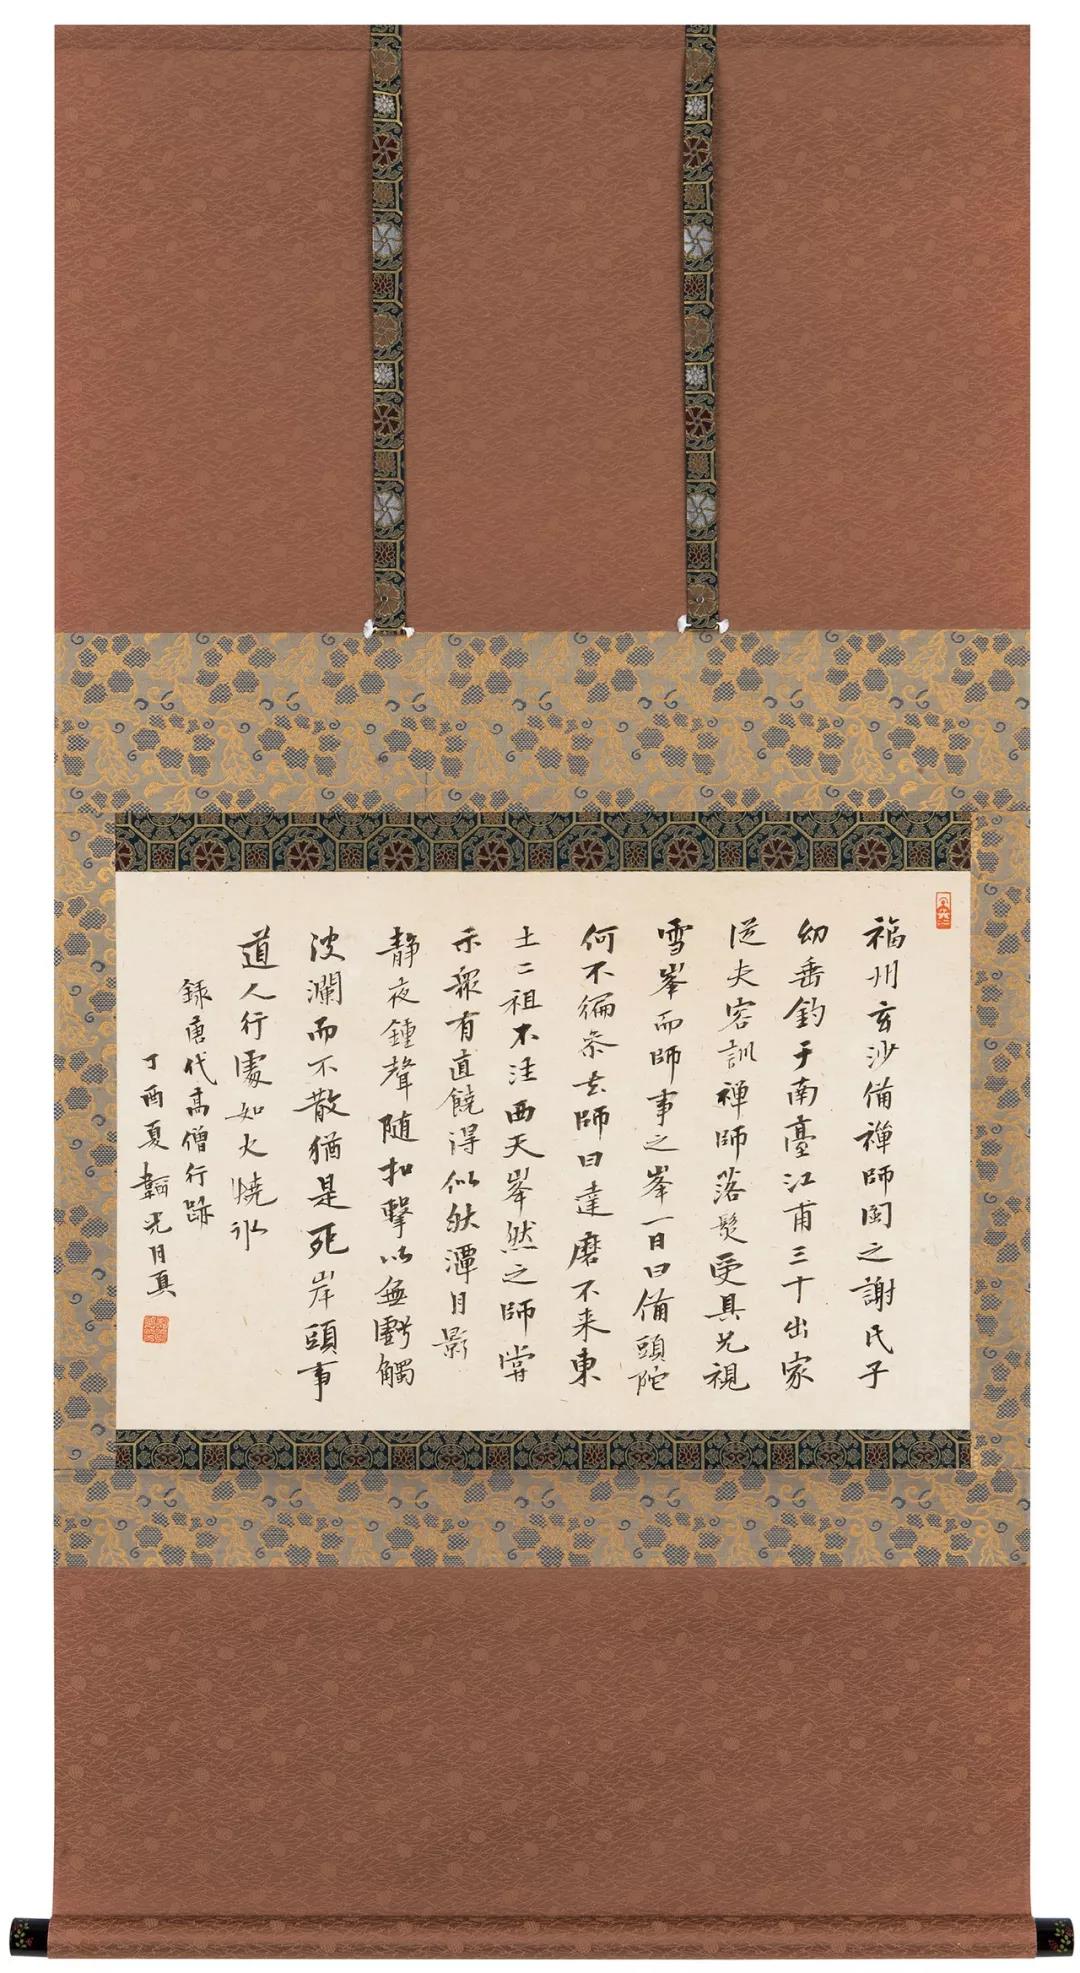 福州玄沙俻禅師閩之謝氏子
幼垂釣于南臺江甫三十出家
従夫容訓禅師落髮受具兄視
雪峯而師事之峯一日曰俻頭陀
何不徧叅去師曰達磨不来東
土二祖不往西天峯然之師嘗
示衆有直饒得似秋潭月影
静夜鍾聲随扣擊以無虧觸
波瀾而不散猶是死岸頭事
道人行處如火燒氷
録唐代高僧行跡
丁酉夏韜光月真